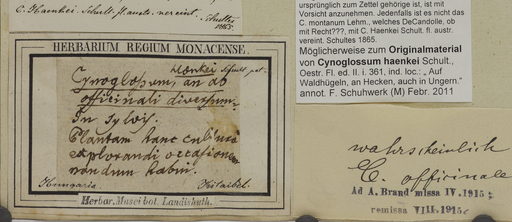 C. Haenkei Schult. fl. austr. vereint. Schultes
1865.
HERBARIUM REGIUM MONACENSE.
Haenkei Schult. pat.
Cynoglossum, an ab
officinali diversum
In sylvis.
Plantam hanc cultura
explorandi occasionem
nondum habui.
Hungaria Kitaibel.
Herbar. Musei bot. Landishuth.
ursprünglich zum Zettel gehörige ist, ist mit
Vorsicht anzunehmen. Jedenfalls ist es nicht das
C. montanum Lehm., welches DeCandolle, ob
mit Recht???, mit C. Haenkei Schult. fl. austr.
vereint. Schultes 1865.
Möglicherweise zum Originalmaterial
von Cynoglossum haenkei Schult.,
Oestr. Fl. ed. II. i. 361, ind. loc.: „ Auf
Waldhügeln, an Hecken, auch in Ungern.“
annot. F. Schuhwerk (M) Febr. 2011
wahrscheinlich
C. officinale
Ad A. Brand missa IV. 1915;
remissa VIII. 1915